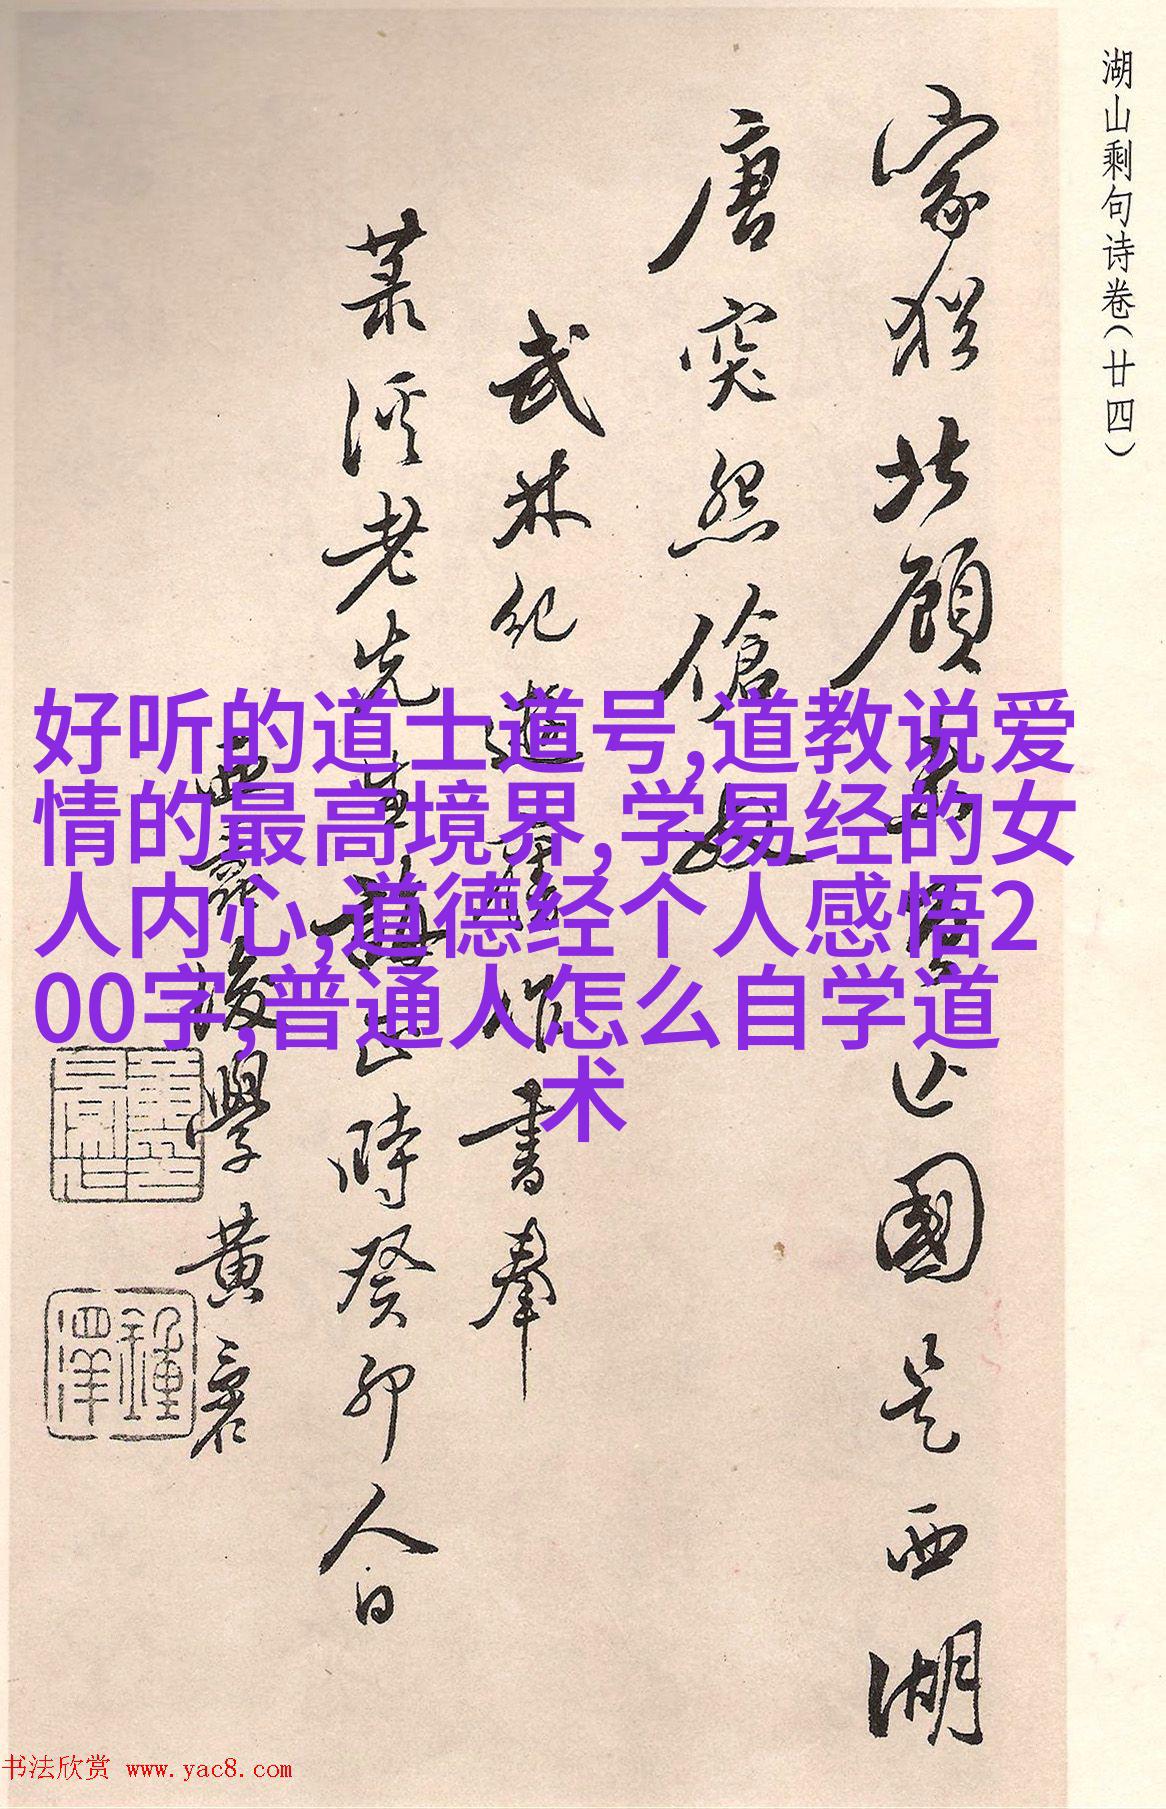 湖山剩句诗卷(廿四)
家猶北顧亡國是西湖
唐突怨傖
武林紀遊舊作書奉
老先生正時癸卯人日
後學黄
好听的道士道号,道教说爱
情的最高境界,学易经的女
人内心,道德经个人感悟2
00字,普通人怎么自学道
术
书法欣赏 www.yac8.com